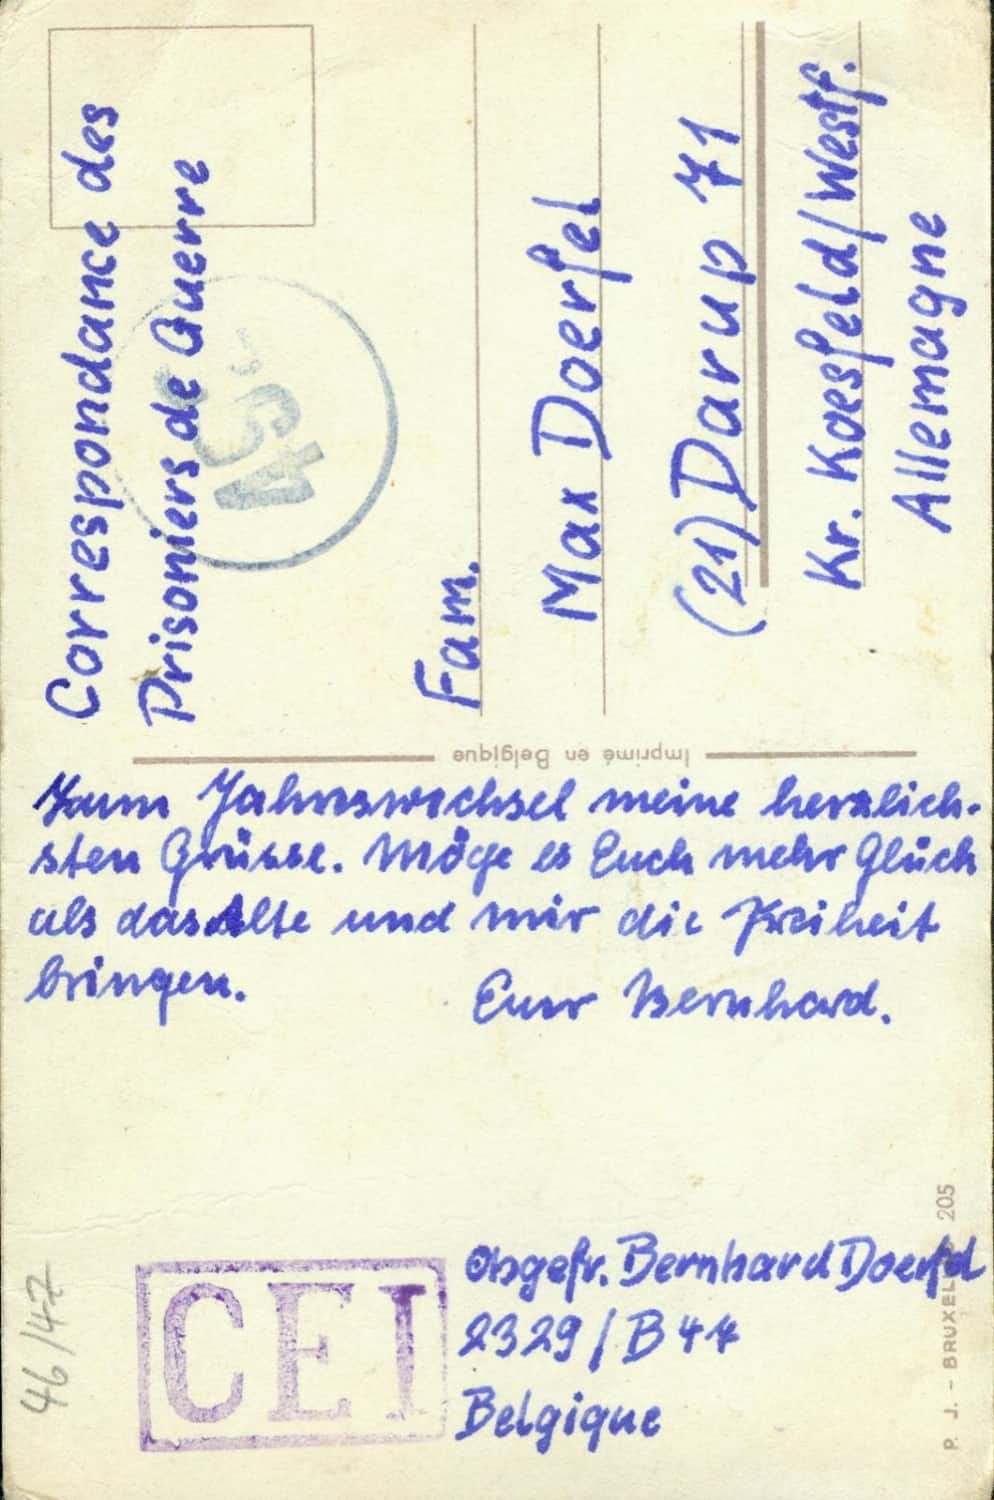 Correspondance des
Prisoniers de Guerre
Fam.
Max Doerfel
(21) Darup 71
Kr. Koesfeld/Westf.
Allemagne
Imprimé en Belgique
Zum Jahreswechsel meine herzlich-
sten Grüsse. Möge es Euch mehr Glück
als das Alte und mir die Freiheit
bringen.
Euer Bernhard.
Obgefr. Bernhard Doerfel
2329/B44
Belgique
CEI
46/47
P. J. - BRUXELLES 205